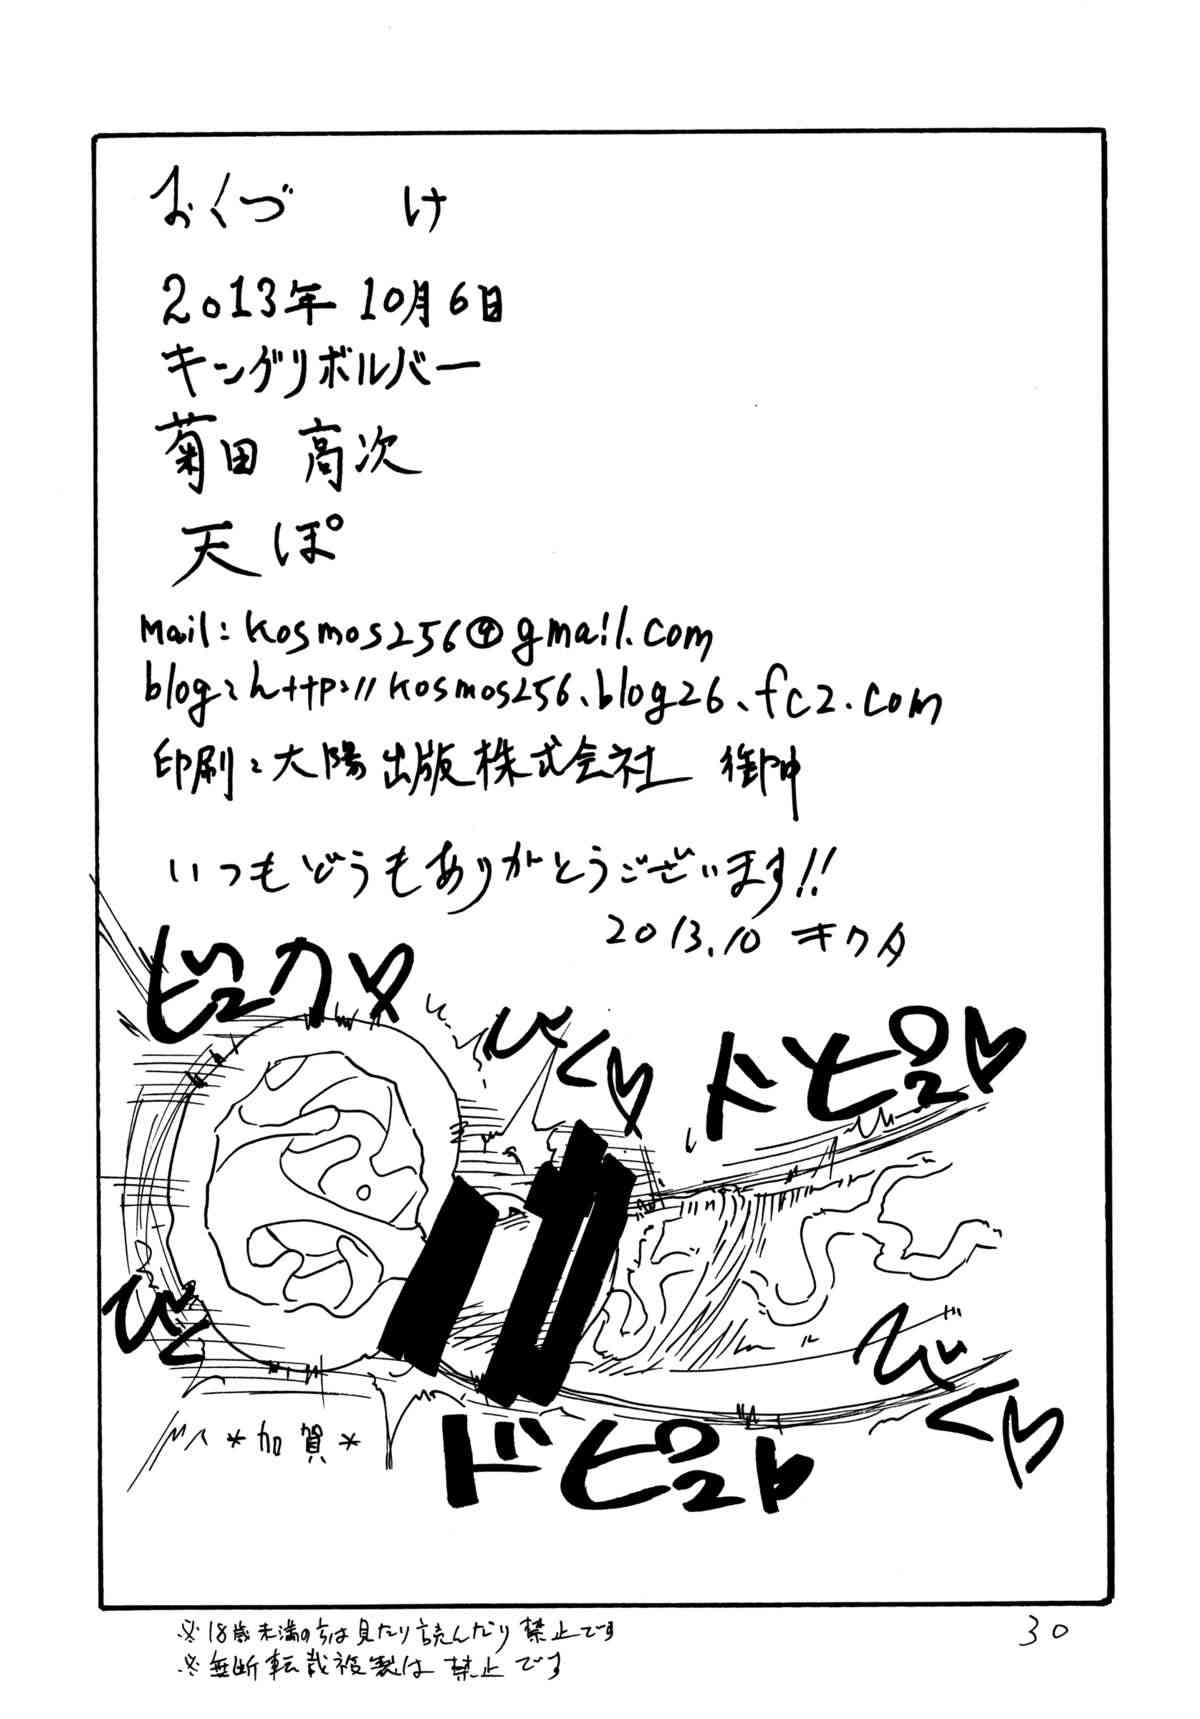 おくづけ
2013年10月6日
キングリボルバー
菊田 高次
天ぽ
mail:kosmos256@gmail.com
blog:http://kosmos256.blog26.fc2.com
印刷:大陽出版株式会社 御中
いつもどうもありがとうございます!!
2013.10 キクタ
ビュクッ
びくっ♡
ドピュ♡
びく
びくっ♡
*加賀*
ドピュッ
※18歳未満の方は見たり読んだり禁止です
※無断転載複製は禁止です
30